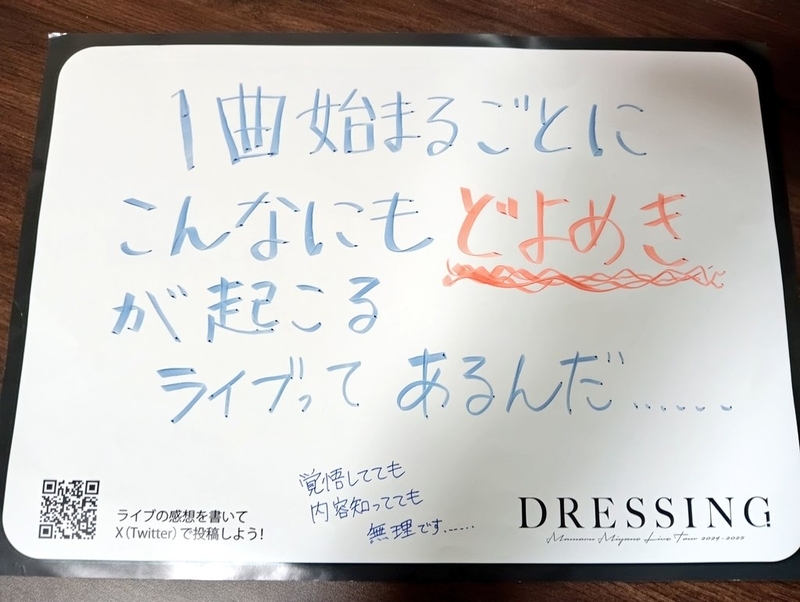 1曲始まるごとに
こんなにもどよめき
が起こる
ライブってあるんだ......
覚悟してても
内容知ってても
無理です......
ライブの感想を書いて
X(Twitter)で投稿しよう!
DRESSING
Mamoru Miyano Live Tour 2024-2025